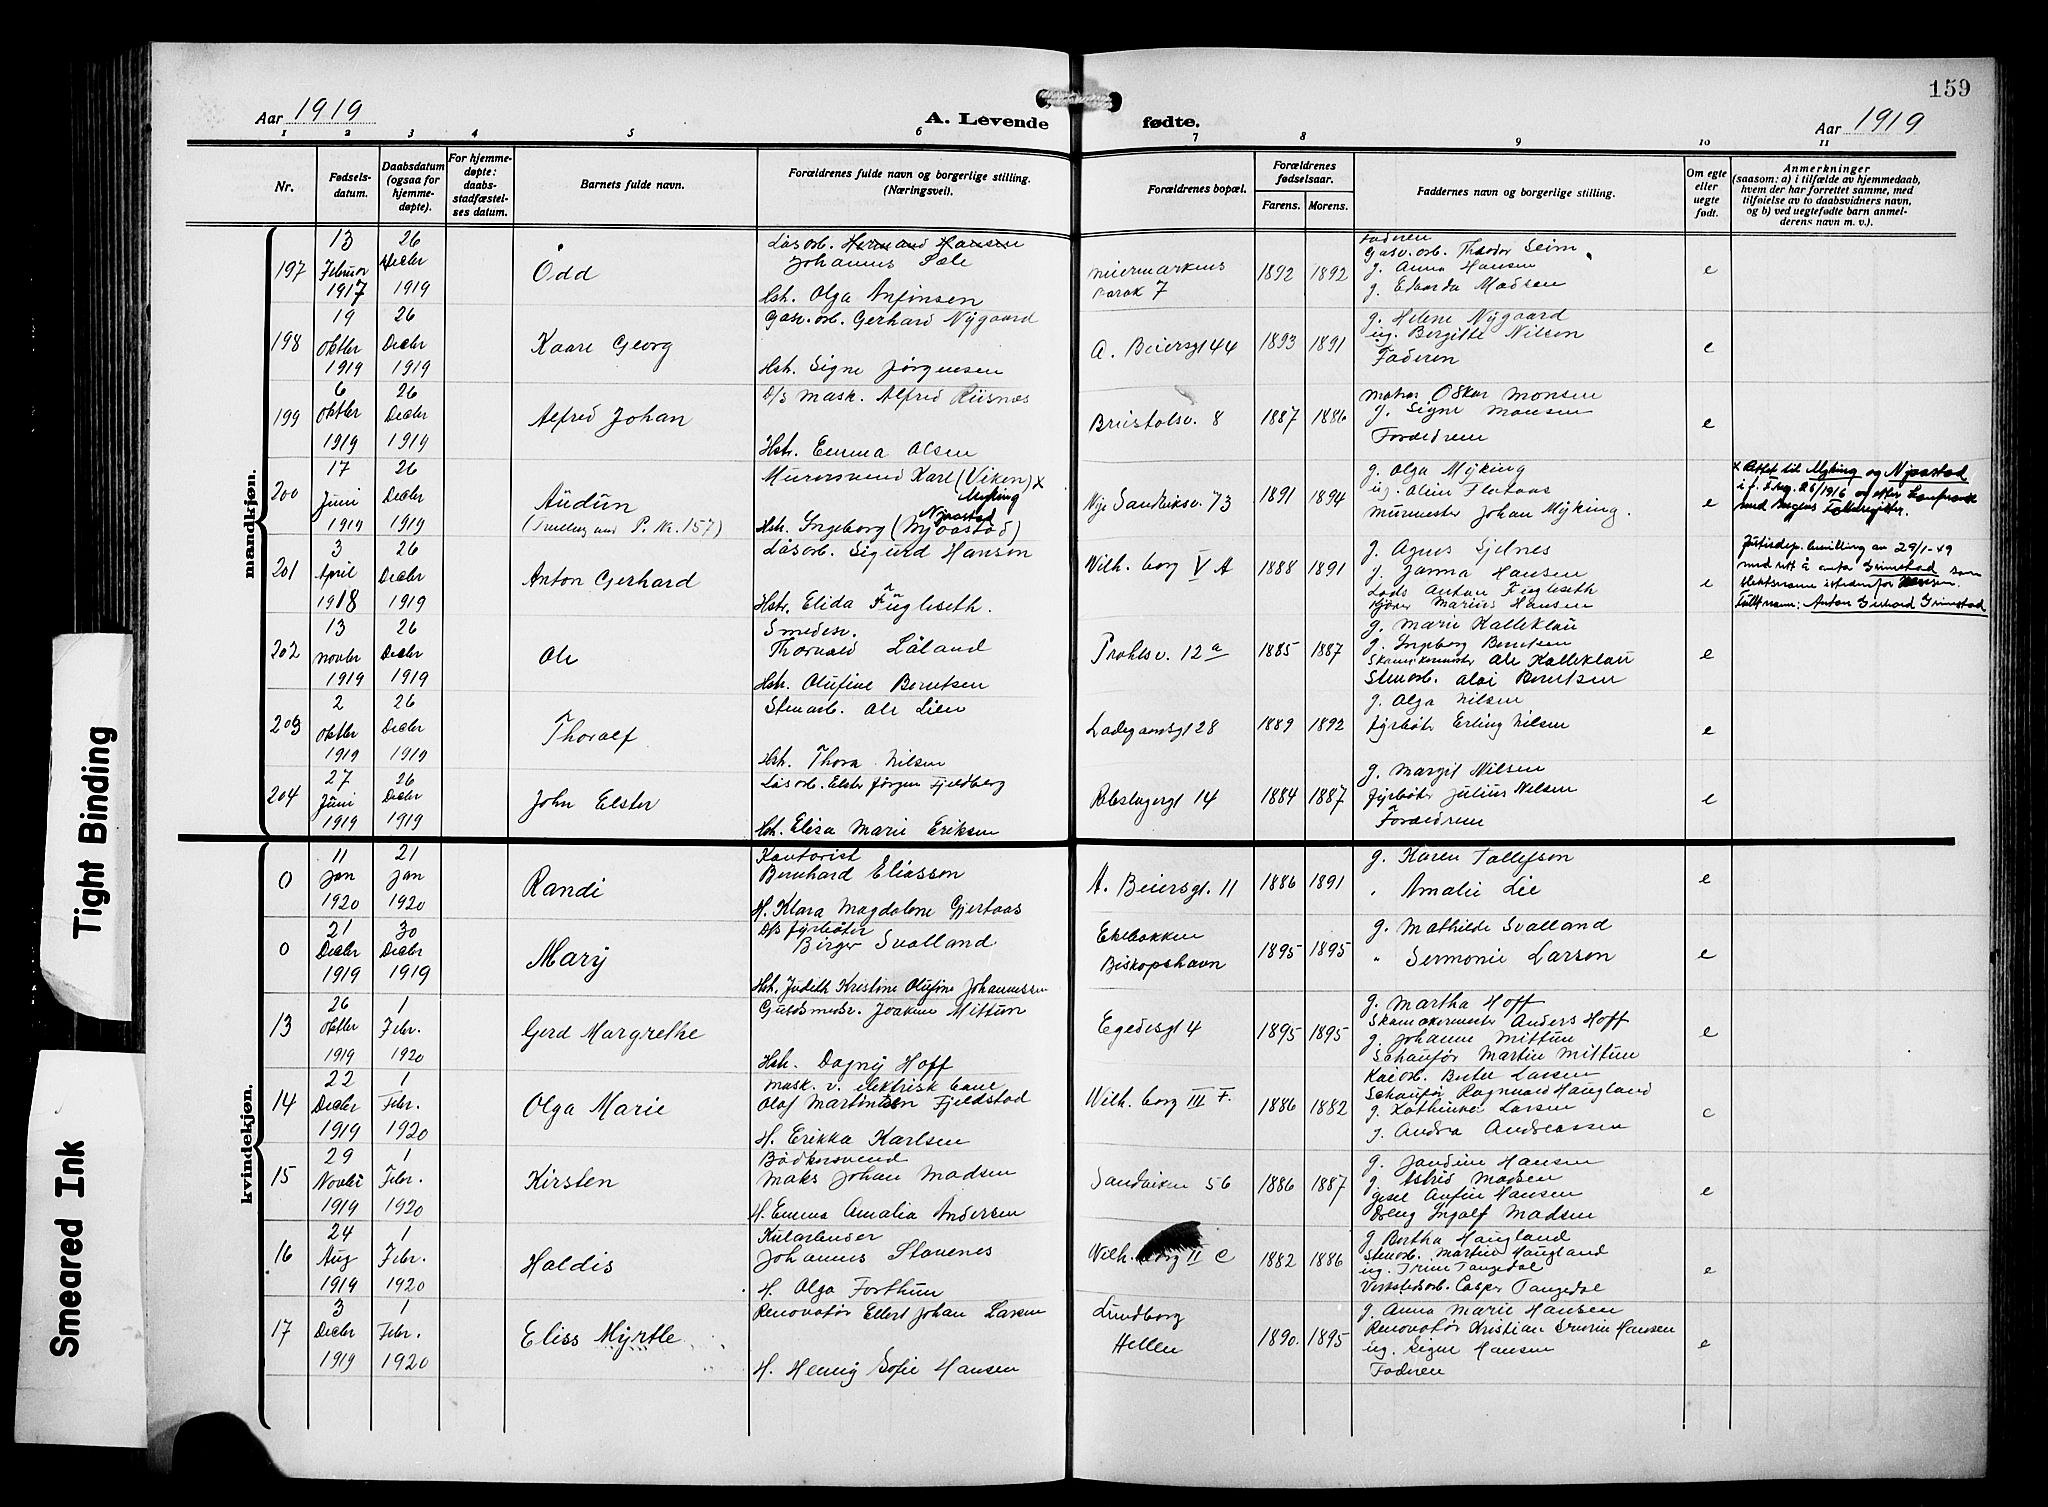 159
Aar 1919
A. Levende fødte.
Aar 1919
1 2 3 4 5 6 7 8 9 10 11
Nr.
Fødsels-
datum.
Daabsdatum
(ogsaa for
hjemme-
døpte).
For hjemme-
døpte:
daabs-
stadfæstel-
ses datum.
Barnets fulde navn.
Forældrenes fulde navn og borgerlige stilling.
(Næringsvei).
Forældrenes bopæl.
Forældrenes
fødselsaar.
Farens. Morens.
Faddernes navn og borgerlige stilling.
Om egte
eller
uegte
født.
Anmerkninger
(saasom: a) i tilfælde av hjemmedaab,
hvem der har forrettet samme, med
tilføielse av to daabsvidners navn,
og b) ved uegtefødte barn anmel-
derens navn m. v.).
mandkjøn.
197
13
Februar
1917
26
Decbr
1919
Odd
Løsarb. Herm and Hansen
Johannes Sæle
Hstr. Olga Anfinsen
Barak 7
1892 1892
Faderen
Gasv.arb. Theodor Seim
g. Anna Hansen
g. Edvarda Madsen
e
198
19
Oktbr
1919
26
Decbr
1919
Kaare Georg
Gasv. arb. Gerhard Nygaard
Hstr. Signe Jørgensen
A. Beiersgt 44
1893 1891
g. Helene Nygaard
ug. Bergitte Nilsen
Faderen
e
199
6
Oktbr
1919
26
Decbr
1919
Alfred Johan
D/S mask. Alfred Riisnæs
Hstr. Emma Olsen
Bristolsv. 8
1887 1886
Matros Oskar Monsen
g. Signe Monsen
Forældrene
e
200
17
Juni
1919
26
Decbr
1919
Audun
(Tvilling med P. Nr. 157)
Murersvend Karl (Viken) x
Myking
Njaastad
Hstr. Ingeborg (Njaastad)
Nye Sandviksv. 73
1891 1894
g. Olga Myking
ug. Aline Flataas
Murmester Johan Myking.
e
x Rettet til Myking og Njaastad
201
3
April
1918
26
Decbr
1919
Anton Gerhard
Løsarb. Sigurd Hansen
Hstr. Elida Fugleseth.
Wilh. borg V A
1888 1891
g. Agnes Sjelnes
g. Janna Hansen
Lods Anton Fugleseth
Kjører Marius Hansen
e
Justisdep. bevilling av 29/1-49
med rett å anta Grimstad som
slektsnavn istedenfor Hansen.
Fullt navn: Anton Gerhard Grimstad
202
13
Novbr
1919
26
Decbr
1919
Ole
Smedesv.
Thorvald Låland
Hstr. Olufine Berntsen
Prahlsv. 12a
1885 1887
g. Marie Kalleklau
g. Ingeborg Berntsen
Skomakermester Ole Kalleklau
Stenarb. Aloi Berntsen
e
203
2
Oktbr
1919
26
Decbr
1919
Thoralf
Stenarb. Ole Lien
Hstr. Thora Nilsen
Ladegaardsgt 28
1889 1892
g. Olga Nilsen
Fyrbøter Erling Nilsen
e
204
27
Juni
1919
26
Decbr
1919
John Elster
Løsarb. Elster Jørgen Fjeldberg
Hstr. Elisa Marie Eriksen
Rebslagergt 14
1884 1887
g. Margit Nilsen
Fyrbøter Julius Nilsen
Forældrene
e
kvindekjøn.
0
11
Jan
1920
21
Jan
1920
Randi
Kontorist
Bernhard Eliassen
H. Klara Magdalene Gjertaas
A. Beiersgt. 11
1886 1891
g. Karen Tollefson
" Amalie Lie
e
0
21
Decbr
1919
30
Decbr
1919
Mary
D/S fyrbøter
Birger Svalland
Hstr. Judith Kristine Olufine Johannessen
Ekebakken
Biskopshavn
1895 1895
g. Mathilde Svalland
" Sermonie Larsen
e
13
26
Oktbr
1919
1
Febr.
1920
Gerd Margrethe
Guldsmedsv. Joakim Mittun
Hstr. Dagny Hoff
Egedesgt 4
1895 1895
g. Martha Hoff
Skomakermester Anders Hoff
g. Johanne Mittun
Schaufør Martin Mittun
e
14
22
Decbr
1919
1
Febr.
1920
Olga Marie
Mask. v. elektrisk bane
Olaf Martinsen Fjeldstad
H. Erikka Karlsen
Wilh. borg III F.
1886 1882
Kaiarb. Larsen
Schaufør Ragnvald Haugland
g. Kathinka Larsen
g. Andra Andreassen
e
15
29
Novbr
1919
1
Febr.
1920
Kirsten
Bødkersvend
Maks Johan Madsen
H. Emma Amalia Andersen
Sandviken 56
1886 1887
g. Jondine Hansen
g. Astrid Madsen
Gesel Anfin Hansen
Dreng Ingolf Madsen
e
16
24
Aug
1919
1
Febr.
1920
Haldis
Kularbeider
Johannes Stavenes
H. Olga Forthun
Wilh. borg II C
1882 1886
g Bertha Haugland
Stenarb. Martin Haugland
ug. Trine Tangedal
Verkstedsarb. Casper Tangedal
e
17
3
Decbr
1919
1
Febr.
1920
Eliss Myrtle
Renovatør Ellert Johan Larsen
H. Henny Sofie Hansen
Lundborg
Hellen
1890 1895
g. Anna Marie Hansen
Renovatør Kristian Severin Hansen
ug. Signe Hansen
Faderen
e
Tight Binding
Smeared Ink